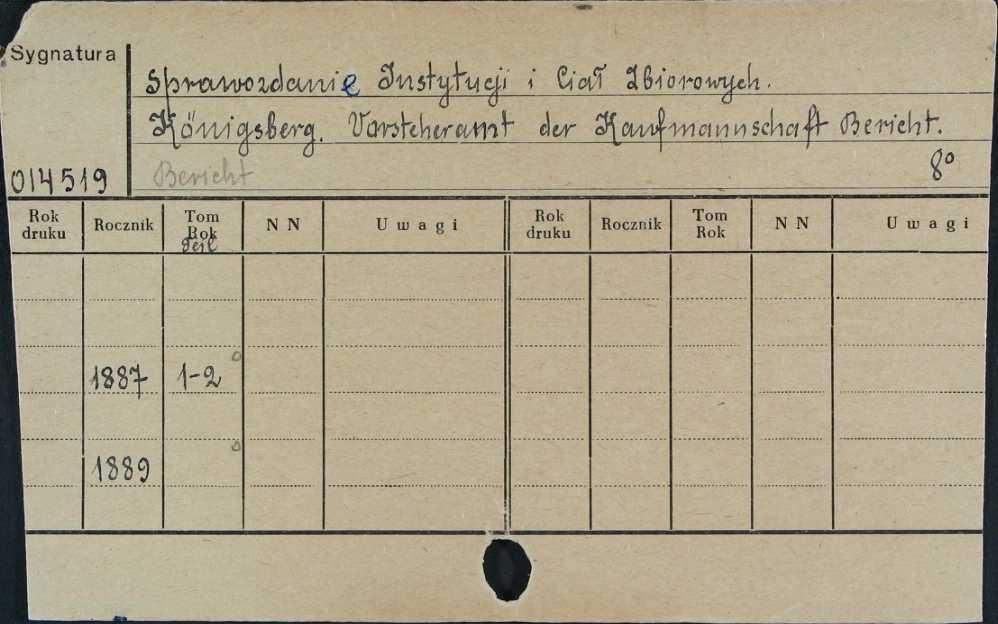 Sygnatura
Sprawozdanie Instytucji i Ciał Zbiorowych.
Königsberg. Vorsteheramt der Kaufmannschaft Bericht.
8°
014519
Bericht
Rok druku Rocznik Tom Rok N N Uwagi Rok druku Rocznik Tom Rok N N Uwagi
1887 1-2
1889